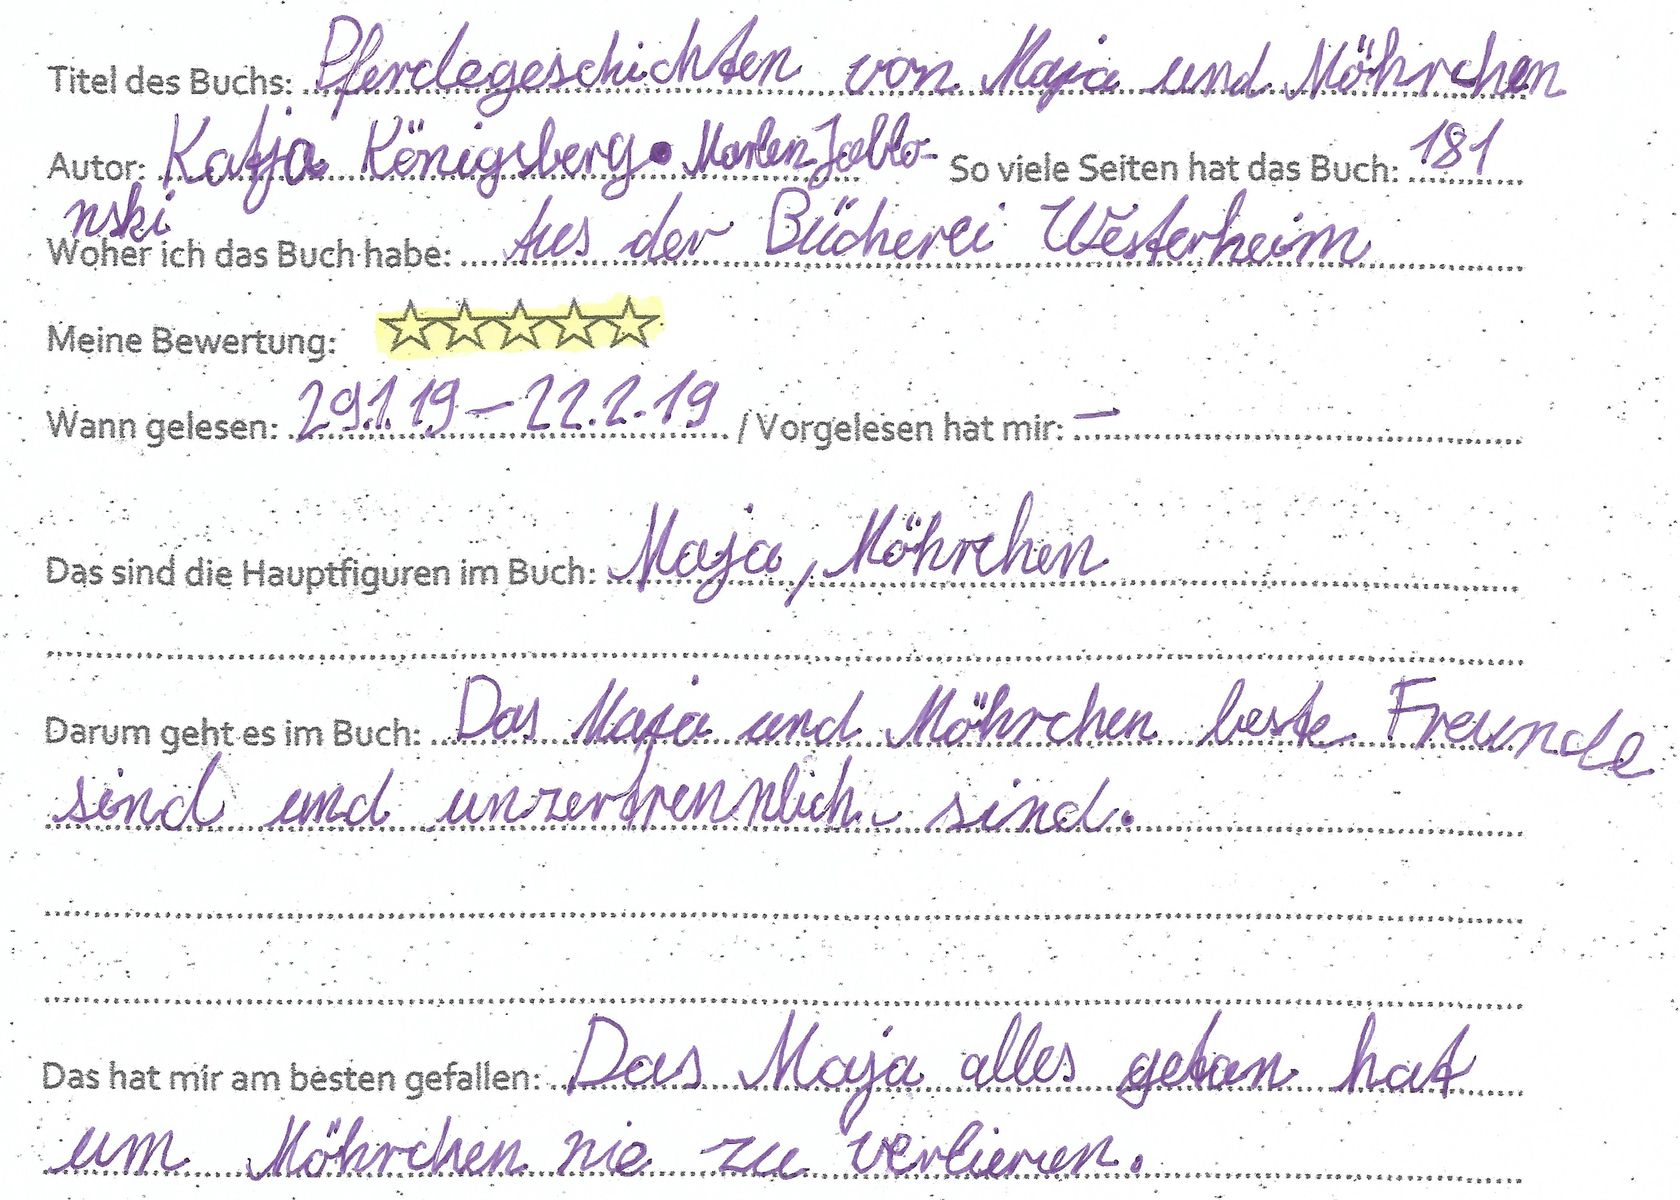 Titel des Buchs: Pferdegeschichten von Maja und Möhrchen
Autor: Katja Königsberg • Marlen Jablo- So viele Seiten hat das Buch: 181
nski
Woher ich das Buch habe: Aus der Bücherei Westerheim
Meine Bewertung: ☆☆☆☆☆
Wann gelesen: 29.1.19 – 22.2.19 / Vorgelesen hat mir: –
Das sind die Hauptfiguren im Buch: Maja, Möhrchen
Darum geht es im Buch: Das Maja und Möhrchen beste Freunde
sind und unzertrennlich sind.
Das hat mir am besten gefallen: Das Maja alles getan hat
um Möhrchen nie zu verlieren.